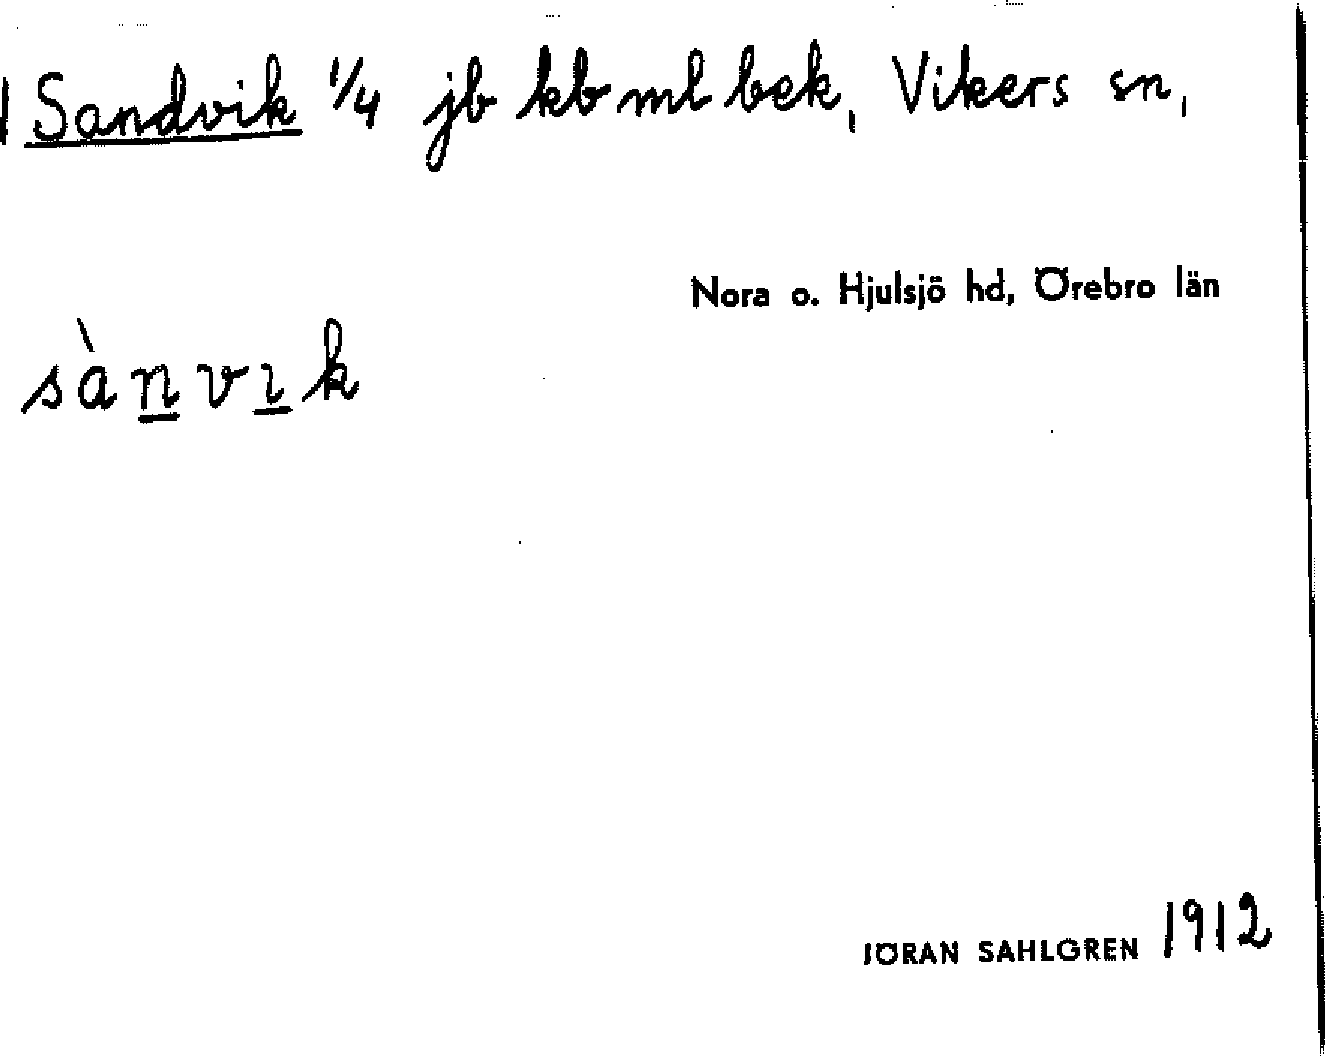 Sandvik 1/4 jb kb ml bek, Vikers sn,
Nora o. Hjulsjö hd, Örebro län
sànvık
JÖRAN SAHLGREN 1912